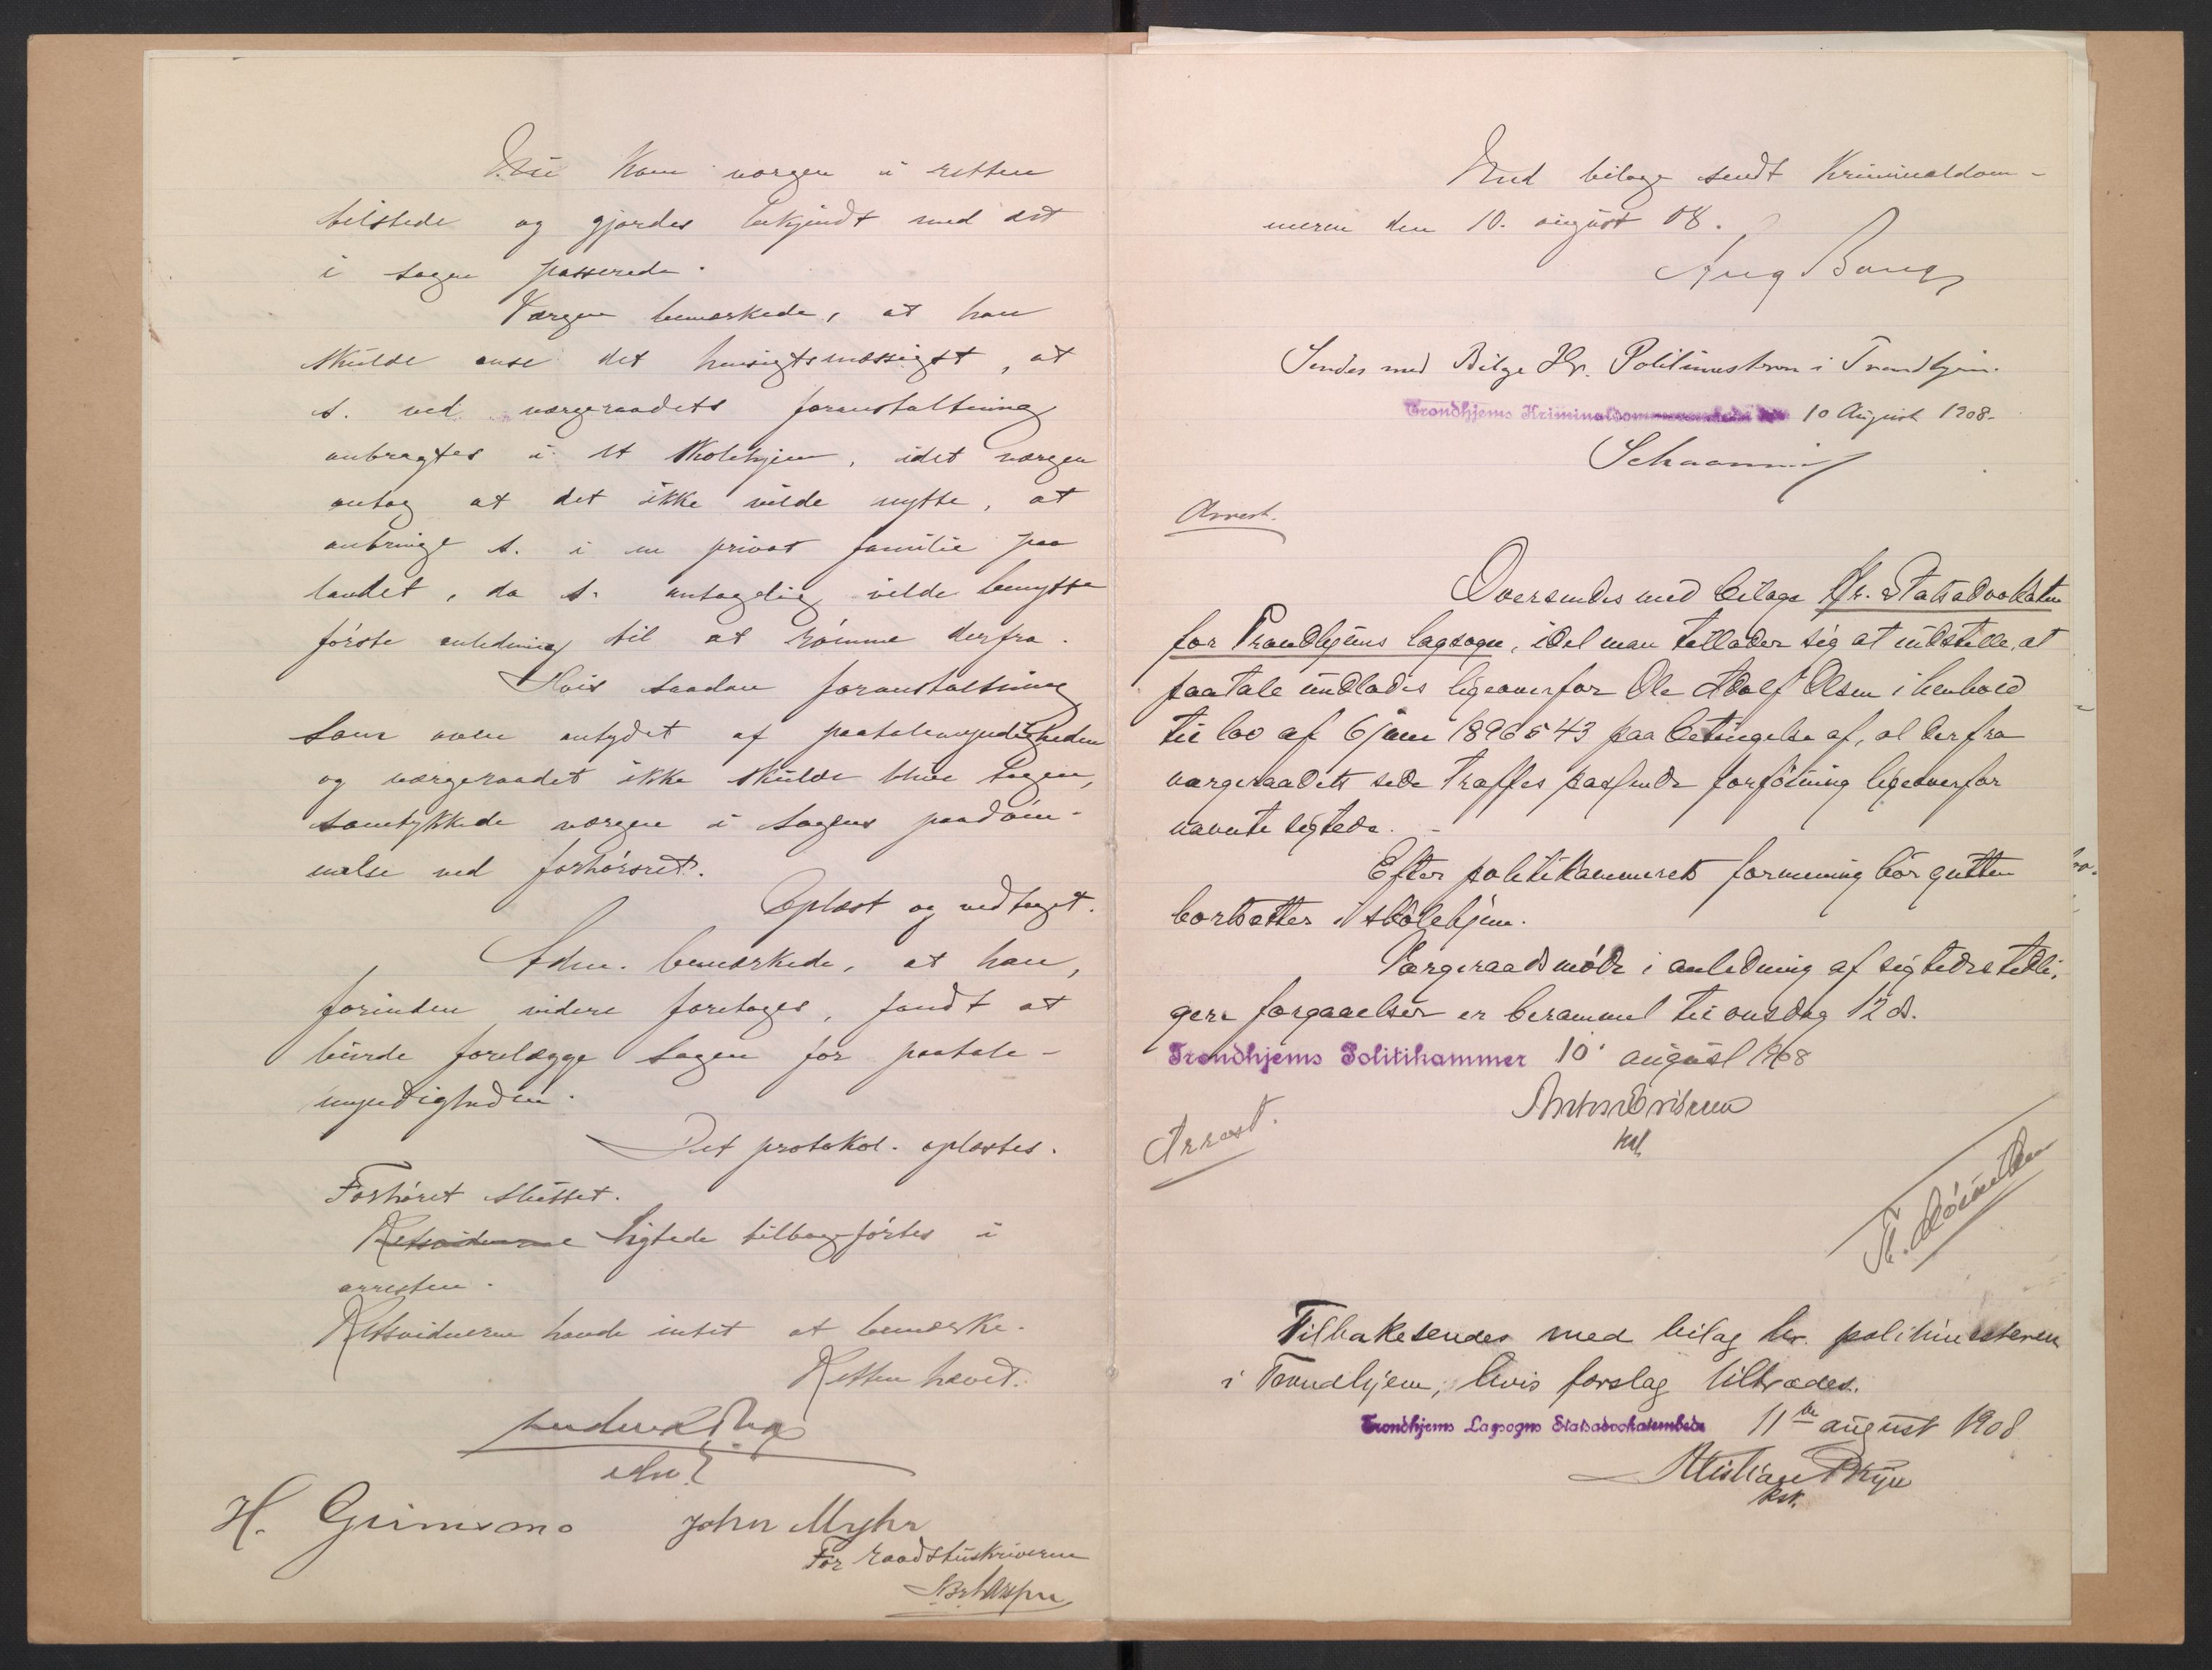 Nu kom værgen i retten
tilstede og gjordes bekjendt med det
i sagen passerede.
Værgen bemærkede, at han
skulde anse det hensigtsmæssigst, at
s. ved værgeraadets foranstaltning
anbragtes i et skolehjem, idet værgen
antog at det ikke vilde nytte, at
anbringe s. i en privat familie paa
landet, da s. antagelig vilde benytte
første anledning til at rømme derfra.
Hvis saadan foranstaltning
som oven antydet af paatalemyndigheden
og værgeraadet ikke skulde blive tagen,
samtykkede værgen i sagens paadøm-
melse ved forhørsret.
Oplæst og vedtaget.
Adm. bemærkede, at han,
forinden videre foretages, fandt at
burde forelægge sagen for paatale-
myndigheden.
Det protokol. oplæstes.
Forhøret sluttet.
Retsvidnerne Sigtede tilbageførtes i
arresten.
Retsvidnerne havde intet at bemærke.
Retten hævet.
H. Grimsmo John Myhr
For raadstuskriveren
Med bilage sendt Kriminaldom-
meren den 10. august 08.
Aug Bang
Sendes med Bilge Hr. Politimesteren i Trondhjem.
Trondhjems Kriminaldommerembede den 10 August 1908-
Schaanning
Arrest.
Oversendes med bilage Hr. Statsadvokaten
for Trondhjems lagsogn, idet man tillader sig at indstille, at
paatale undlades ligeoverfor Ole Adolf Olsen i henhold
til lov af 6 juni 1896 § 43 paa betingelse af, at der fra
værgeraadets side træffes passende forføining ligeoverfor
nævnte sigtede.
Efter politikammerets formening bør gutten
bortsættes i skolehjem.
Værgeraadsmøde i anledning af sigtedes tidli-
gere forgaaelser er berammet til onsdag 12 ds.
Trondhjems Politikammer 10 august 1908
Arrest.
Tilbakesendes med bilag hr. politimesteren
i Trondhjem, hvis forslag tiltrædes.
Trondhjems Lagsogns Statsadvokatembede 11te august 1908
Kristian Bryn
kst.